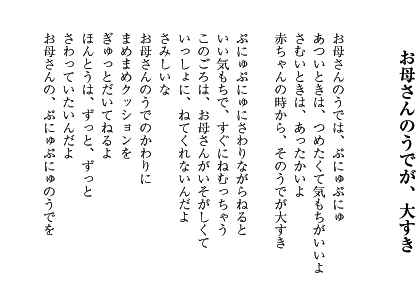 お母さんのうでが、大すき
お母さんのうでは、ぷにゅぷにゅ
あついときは、つめたくて気もちがいいよ
さむいときは、あったかいよ
赤ちゃんの時から、そのうでが大すき
ぷにゅぷにゅにさわりながらねると
いい気もちで、すぐにねむっちゃう
このごろは、お母さんがいそがしくて
いっしょに、ねてくれないんだよ
さみしいな
お母さんのうでのかわりに
まめまめクッションを
ぎゅっとだいてねるよ
ほんとうは、ずっと、ずっと
さわっていたいんだよ
お母さんの、ぷにゅぷにゅのうでを